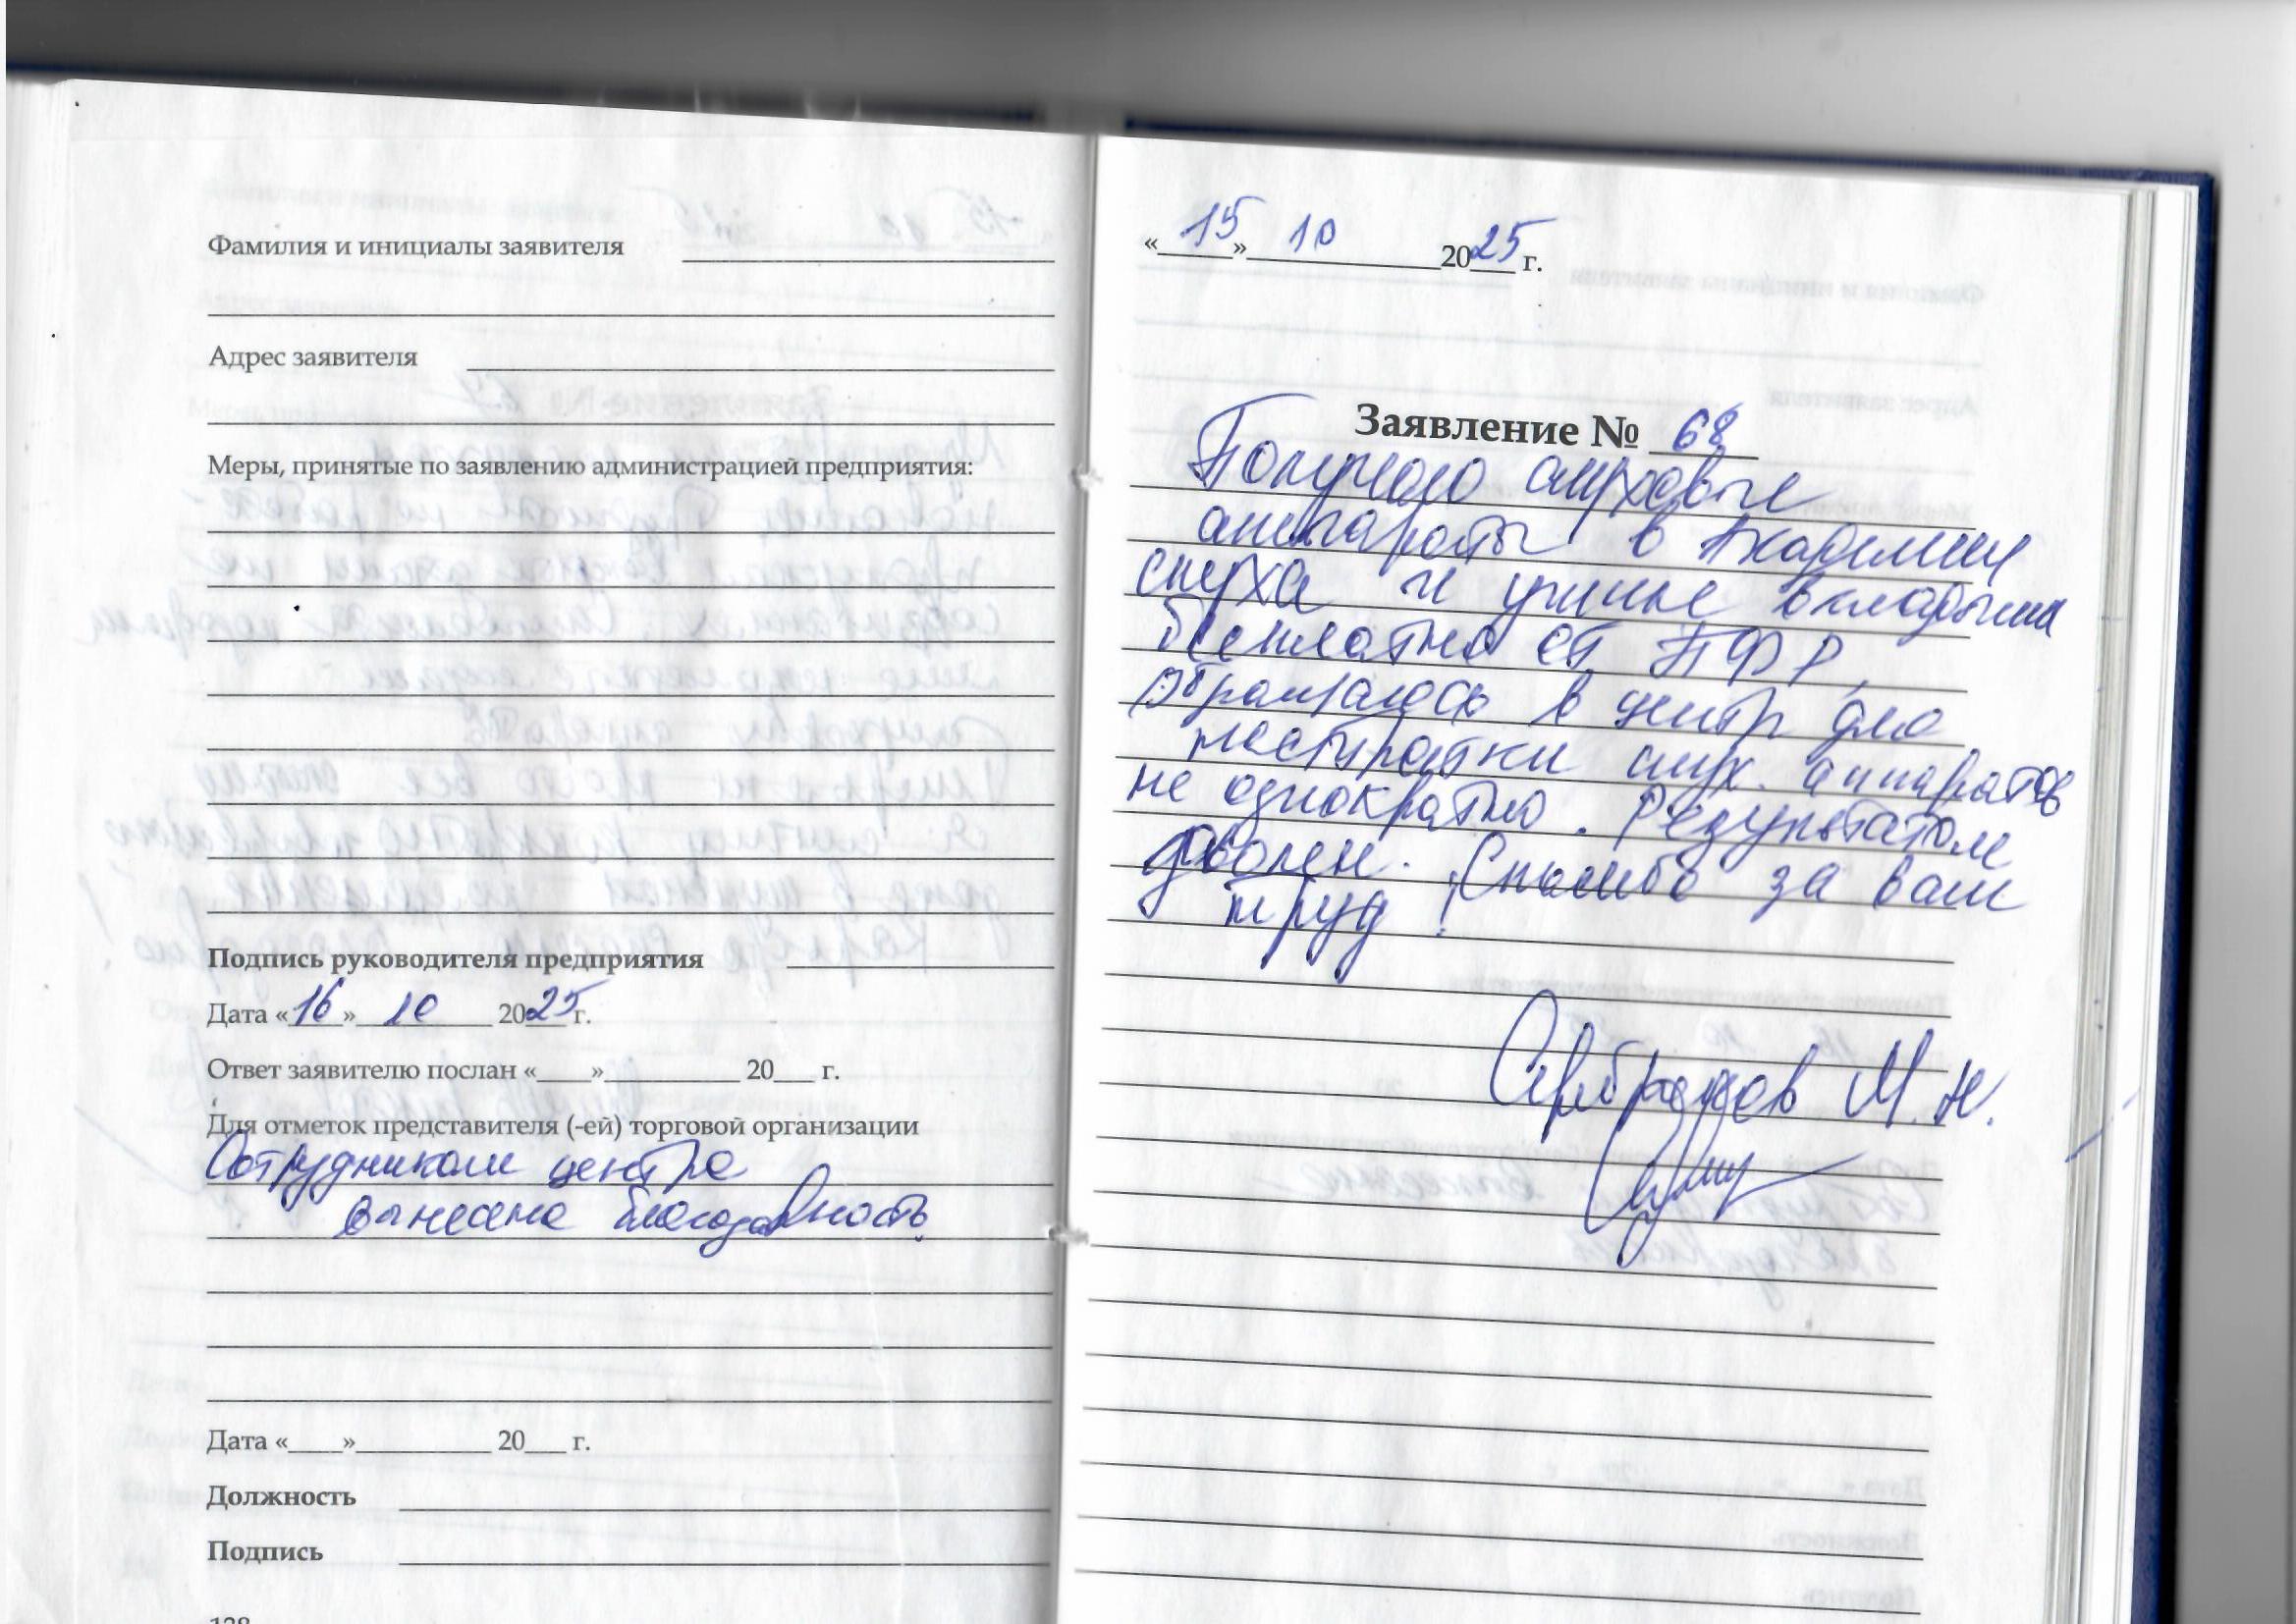 Фамилия и инициалы заявителя
Адрес заявителя
Меры, принятые по заявлению администрацией предприятия:
Подпись руководителя предприятия
Дата «16» 10 2025 г.
Ответ заявителю послан «____»__________ 20___ г.
Для отметок представителя (-ей) торговой организации
Сотрудникам центра
вынесена благодарность.
Дата «____»__________ 20___ г.
Должность
Подпись
128
«15» 10 2025 г.
Заявление № 68
Получаю слуховые
аппараты в Академии
слуха и ушные вкладыши
бесплатно от ПФР,
Обращаюсь в центр для
настройки слух. аппаратов
не однократно. Результатом
доволен. Спасибо за ваш
труд!
М.Н.